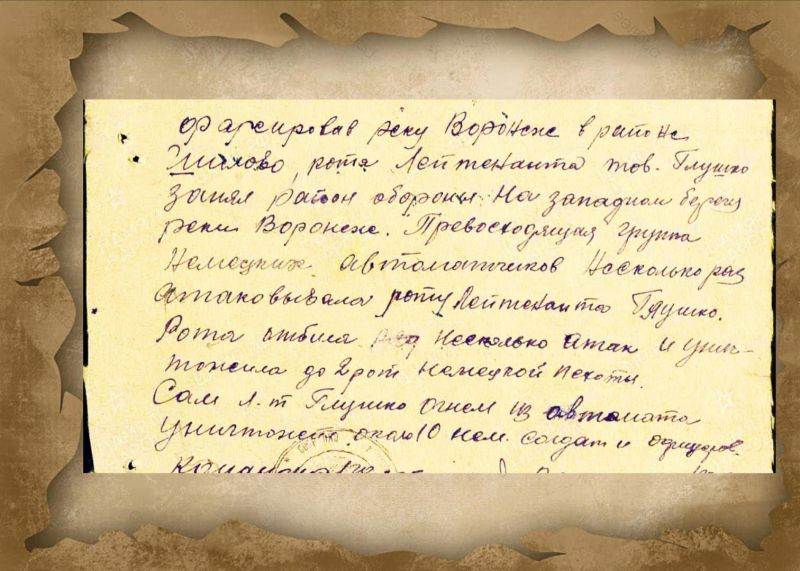 форсировав реку Воронеж в районе
Шилово, рота Лейтенанта тов. Глушко
занял район обороны на западном берегу
реки Воронеж. Превосходящая группа
Немецких автоматчиков несколько раз
атаковывала роту Лейтенанта Глушко.
Рота отбила несколько атак и унич-
тожила до 2 рот немецкой пехоты.
Сам л-т Глушко огнем из автомата
уничтожил около 10 нем. солдат и офицеров.